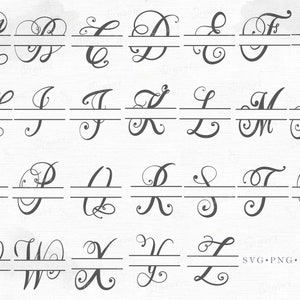 B C D E F
I J K L M
P Q R S T
W X Y Z SVG•PNG•